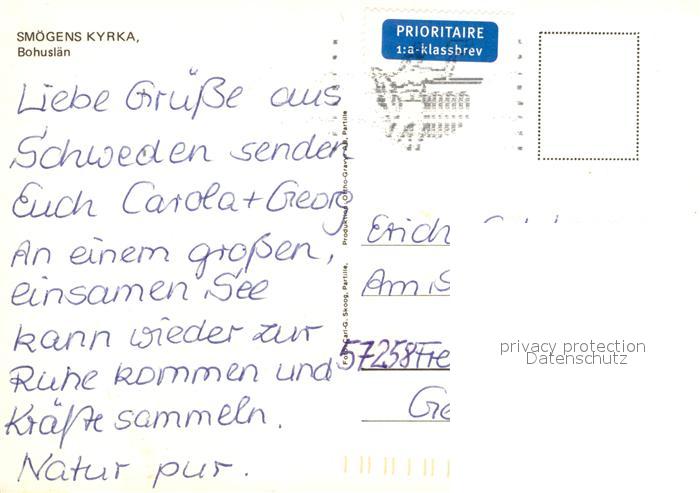 SMÖGENS KYRKA,
Bohuslän
PRIORITAIRE
1:a-klassbrev
Liebe Grüße aus
Schweden senden
Euch Carola + Georg
An einem großen,
einsamen See
kann wieder zur
Ruhe kommen und
Kräfte sammeln.
Natur pur.
Foto: Carl-G. Skoog, Partille. Produktion: Ortho-Gravyr AB, Partille
Erich
Am S
57258 Fre
Ge
privacy protection
Datenschutz